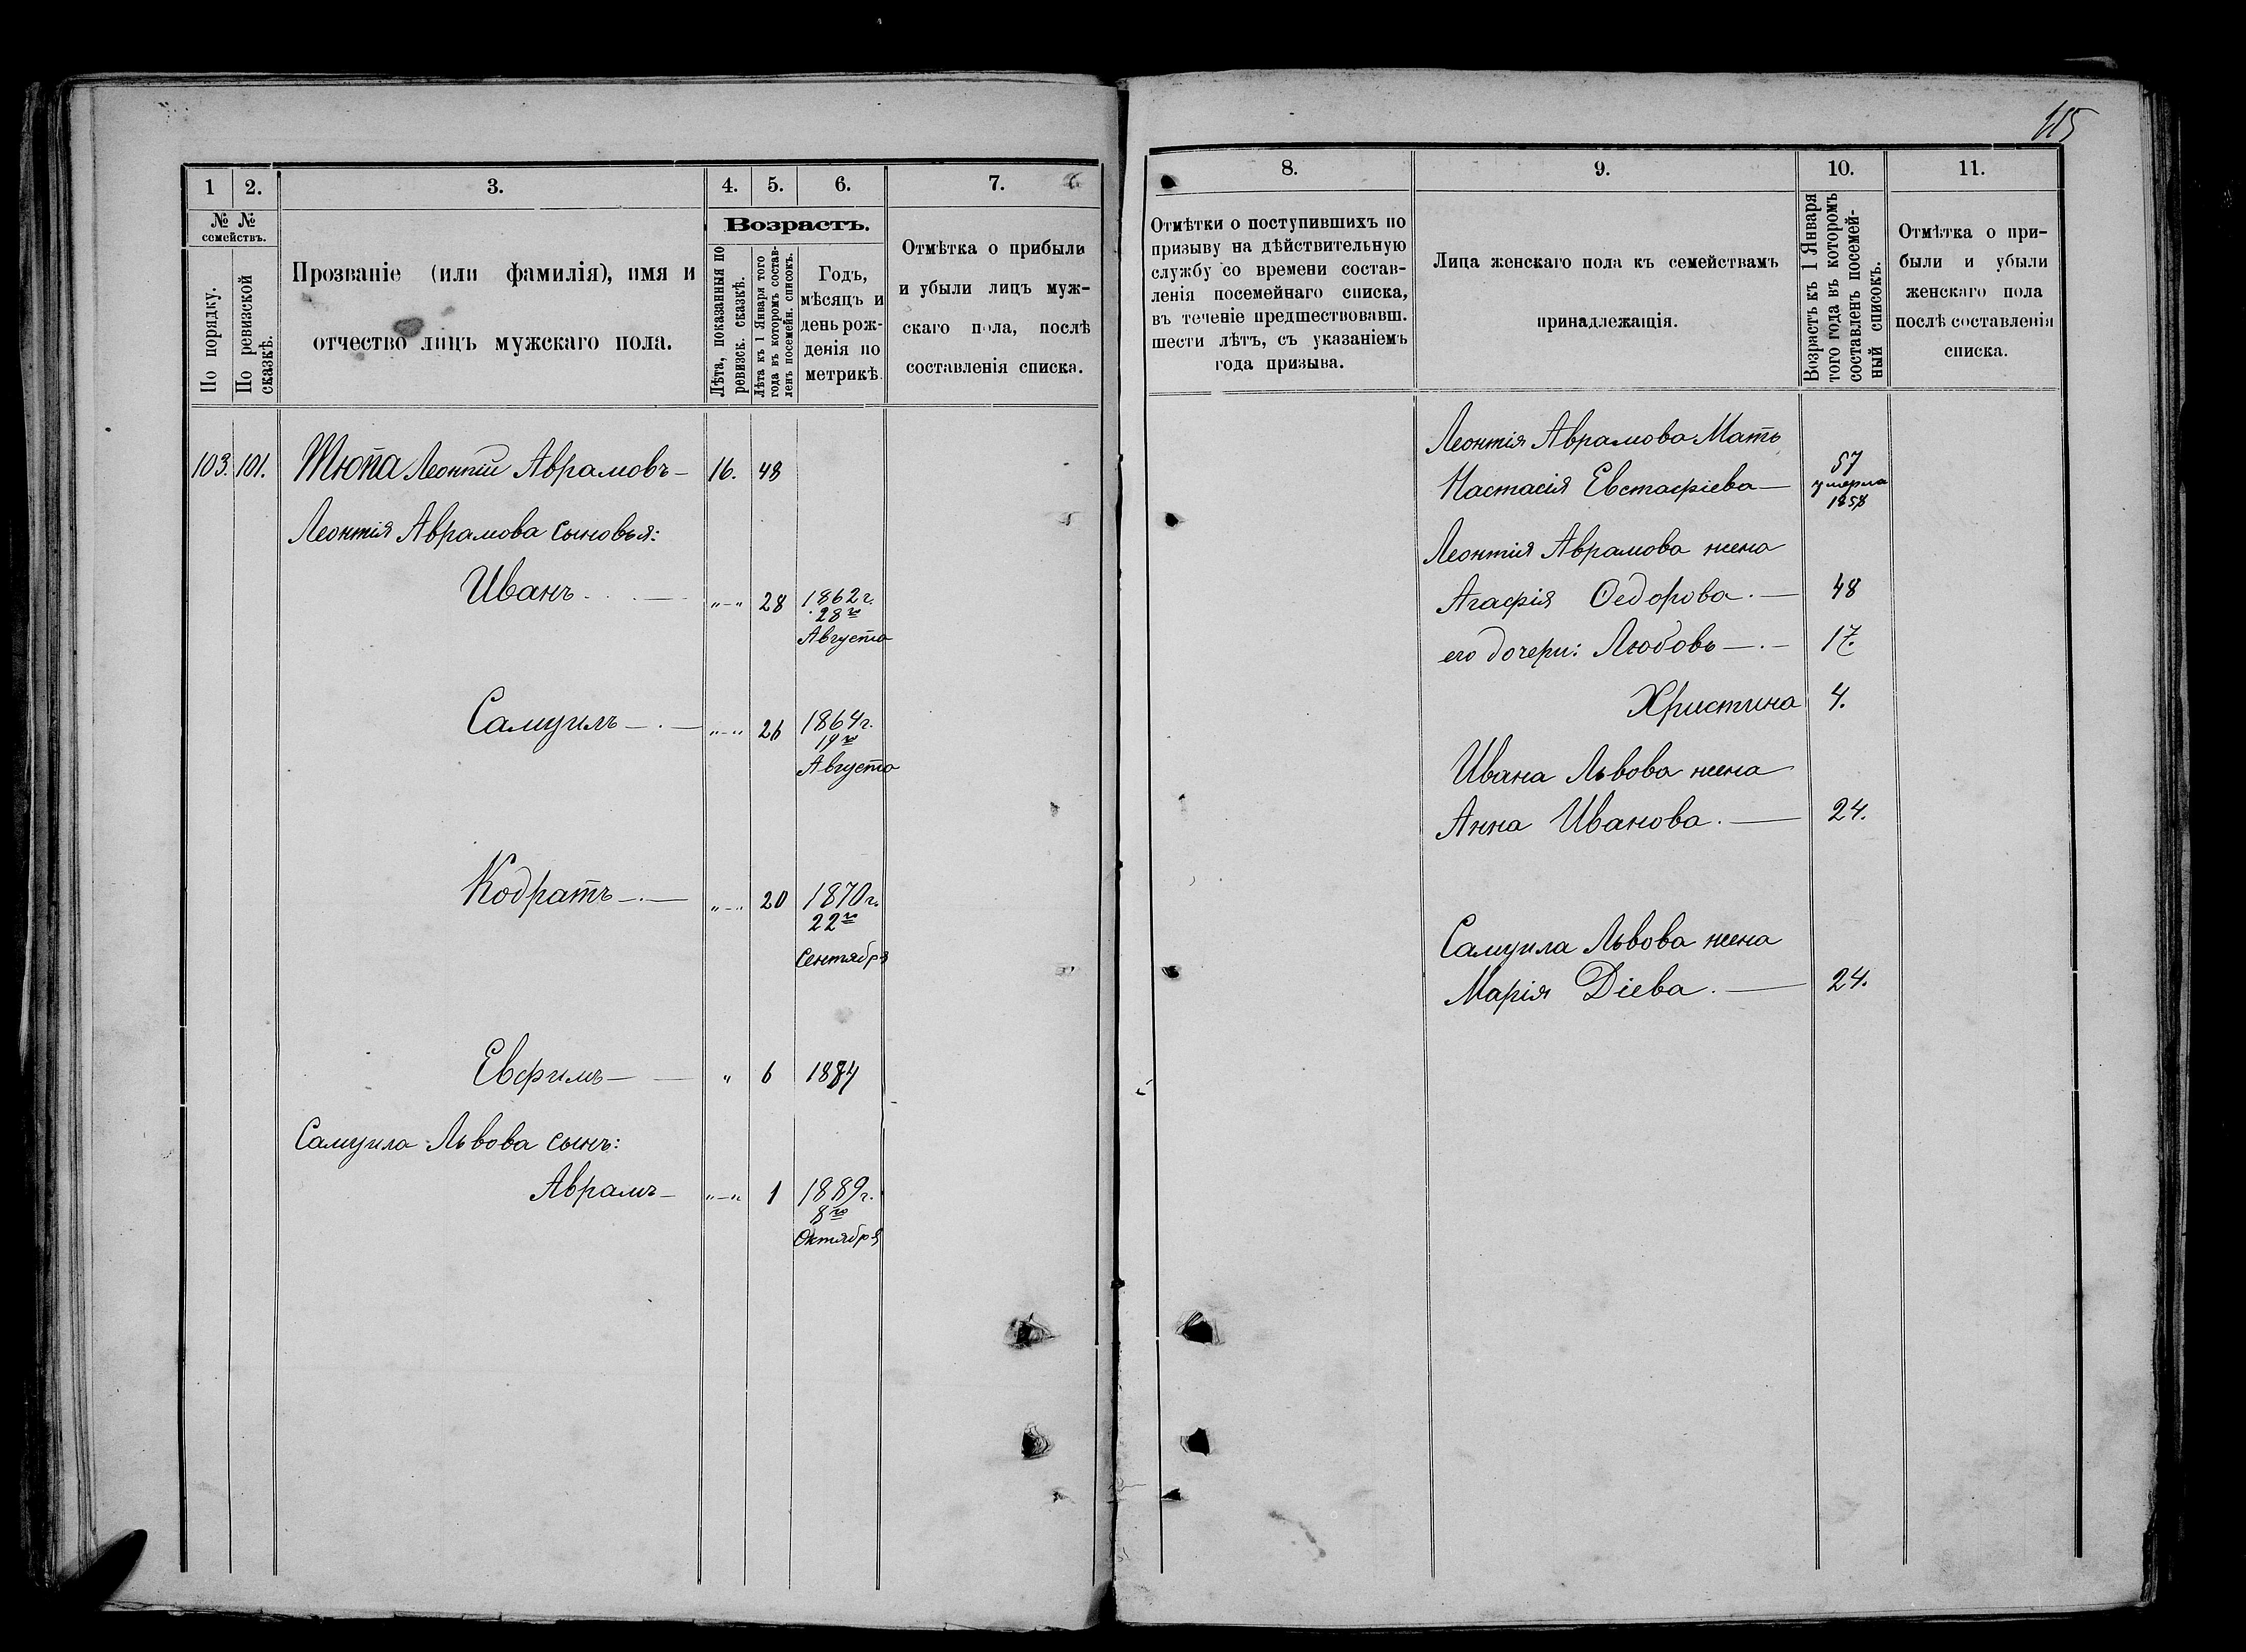 115
1 2. 3. 4. 5. 6. 7.
№ №
семействъ.
По порядку.
По ревизской
сказкѣ.
Прозваніе (или фамилія), имя и
отчество лицъ мужскаго пола.
Возрастъ.
Лѣта, показанныя по
ревизск. сказкѣ.
Лѣта къ 1 Января того
года въ которомъ состав-
ленъ посемейн. списокъ.
Годъ,
мѣсяцъ и
день рож-
денія по
метрикѣ.
Отмѣтка о прибыли
и убыли лицъ муж-
скаго пола, послѣ
составленія списка.
103. 101. Тюпа Леонтій Аврамовъ— 16. 48
Леонтія Аврамова сыновья:
Иванъ — „—„ 28 1862 г.
28го
Августа
Самуилъ — „—„ 26 1864 г.
19го
Августа
Кодратъ — „—„ 20 1870 г.
22го
Сентября
Евфимъ — „ 6 1884
Самуила Львова сынъ:
Аврамъ — „—„ 1 1889 г.
8го
Октября
8. 9. 10. 11.
Отмѣтки о поступившихъ по
призыву на дѣйствительную
службу со времени состав-
ленія посемейнаго списка,
въ теченіе предшествовавш.
шести лѣтъ, съ указаніемъ
года призыва.
Лица женскаго пола къ семействамъ
принадлежащія.
Возрастъ къ 1 Января
того года въ которомъ
составленъ посемей-
ный списокъ.
Отмѣтка о при-
были и убыли
женскаго пола
послѣ составленія
списка.
Леонтія Аврамова Мать
Настасія Евстафіева — 57
умерла
1858
Леонтія Аврамова жена
Агафія Ѳедорова. — 48
его дочери: Любовь — 17.
Христина 4.
Ивана Львова жена
Анна Иванова. — 24.
Самуила Львова жена
Марія Діева. — 24.